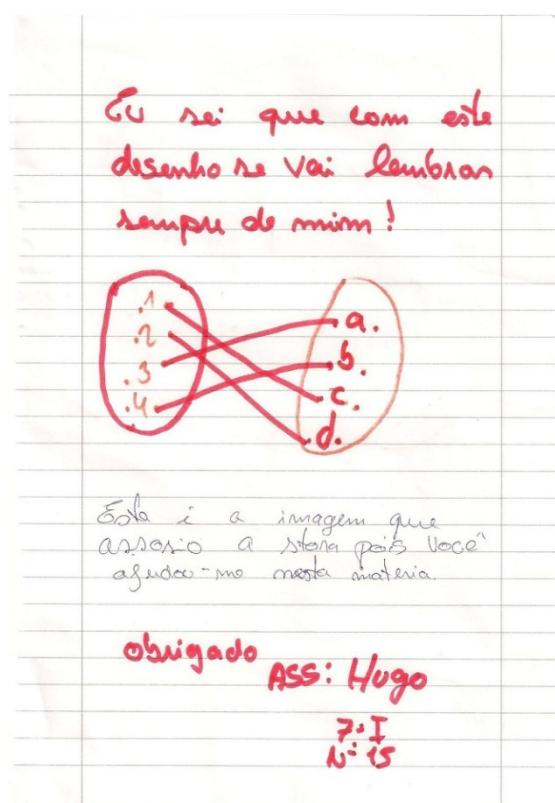 Eu sei que com este
desenho se vai lembrar
sempre de mim!
.1
.2
.3
.4
a.
b.
c.
d.
Esta é a imagem que
assosio a stora pois você
ajudou-me nesta matéria.
obrigado
ASS: Hugo
7º I
Nº 15